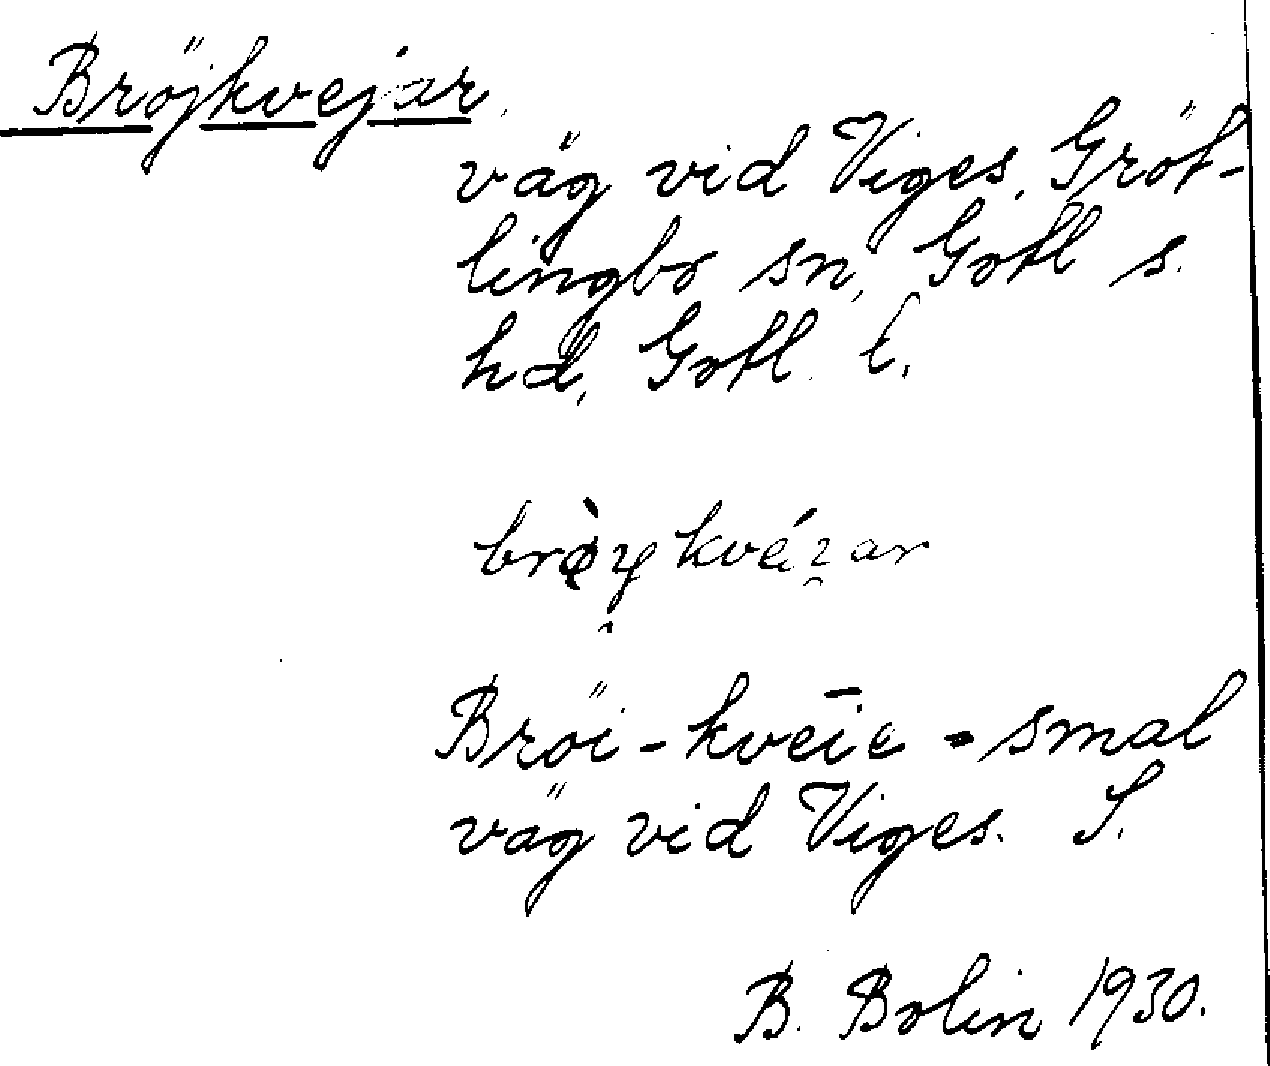 Bröjkvejar
väg vid Viges, Gröt-
lingbo sn, Gotl s.
hd, Gotl. l.
Bröi-kvēie = smal
väg vid Viges. S.
B. Bolin 1930.